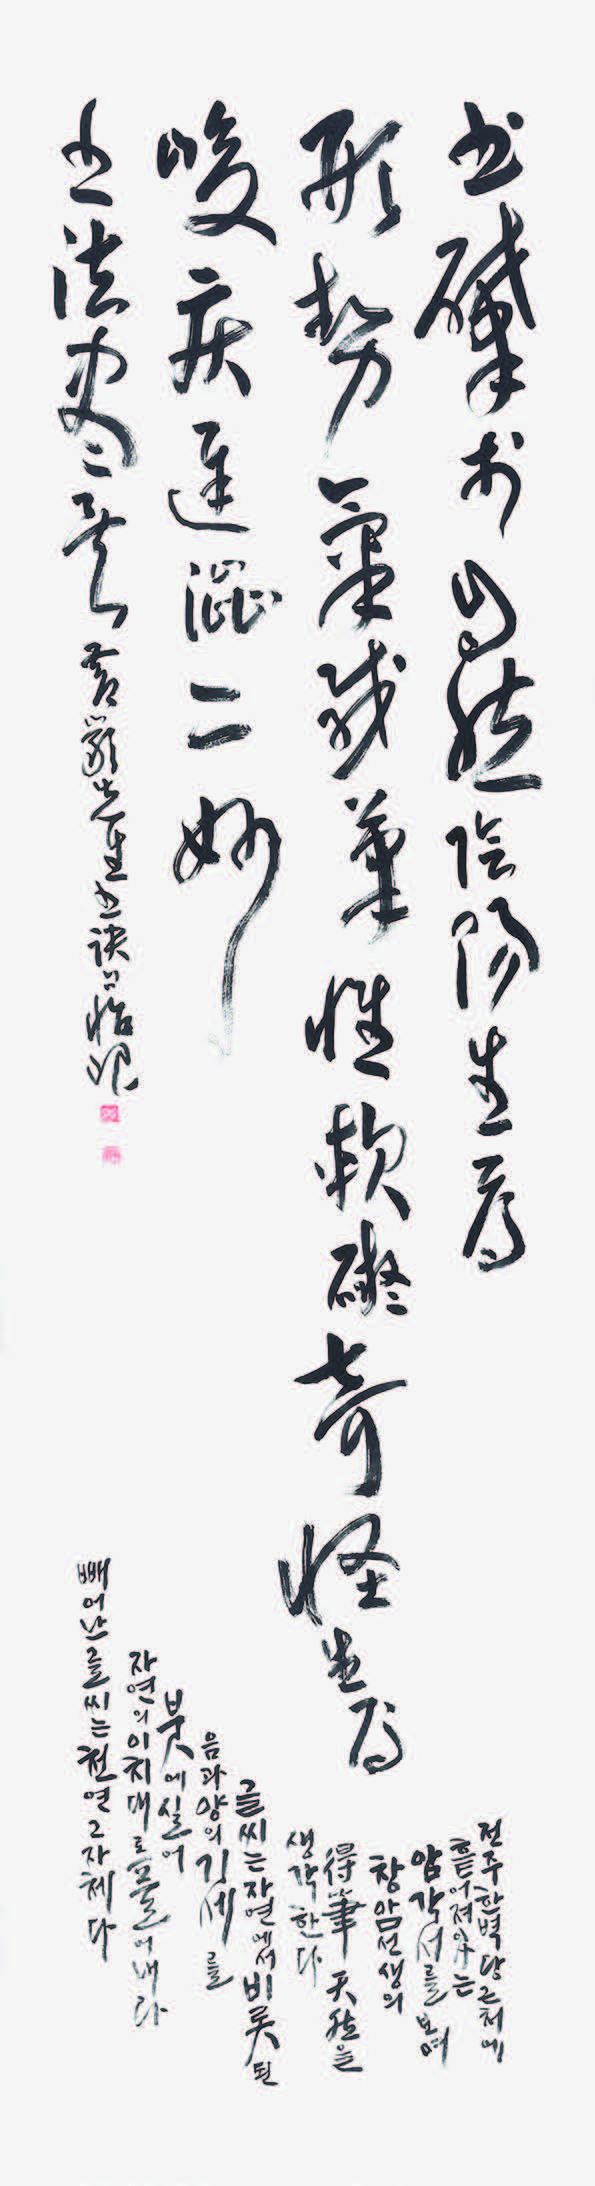 書肇於自然陰陽生焉
形勢氣載筆惟軟礙奇怪生焉
峻疾遲澁二妙
書法盡矣 蒼巖先生書訣
전주 한벽당 근처에
흩어져 있는
암각서를 보며
창암선생의
得筆天然을
생각한다
글씨는 자연에서 비롯된
음과 양의 기세를
붓에 실어
자연의 이치대로 풀어내라
빼어난 글씨는 천연 그 자체다